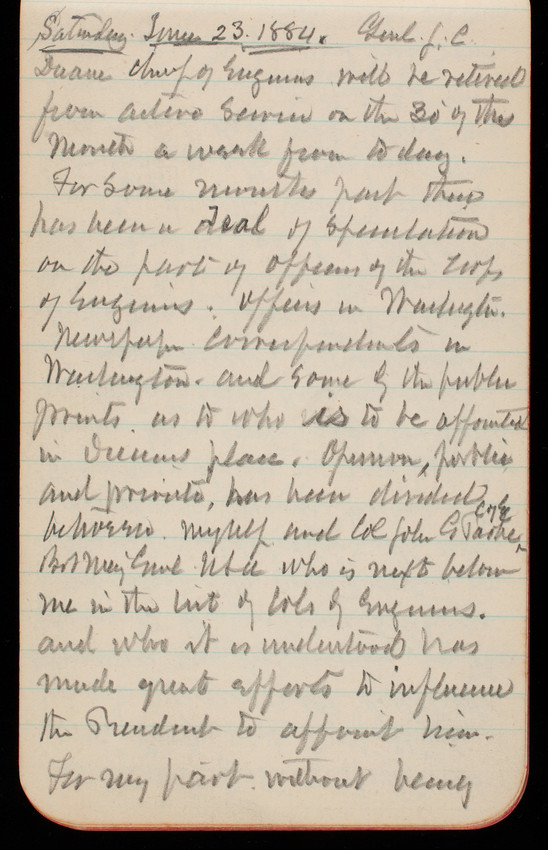 Saturday. June 23. 1884. Genl. J. C.
Duane chief of Engineers will be retired
from active service on the 30 of this
month a week from today.
For some months past there
has been a deal of speculation
on the part of officers of the Corps
of Engineers. officers in Washington.
Newspaper correspondents in
Washington. and some of the public
prints as to who is to be appointed
in Duanes place. Opinion, public
and private, has been divided
between myself and Col John G Parke
Bvt Maj Genl USA who is next below
me in the list of Cols of Engineers.
and who it is understood has
made great efforts to influence
the President to appoint him.
For my part without being